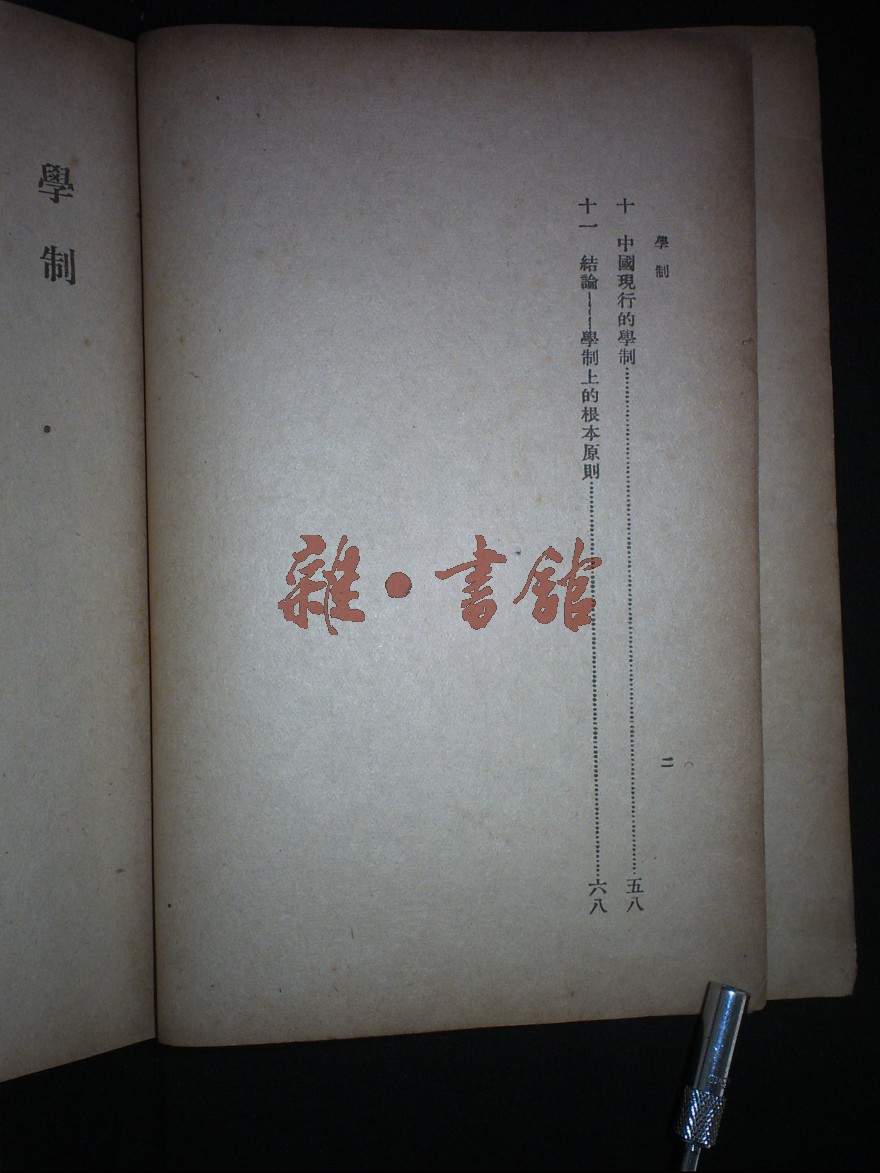 學制
十 中國現行的學制……五八
十一 結論——學制上的根本原則……六八
二
雜·書館
學制